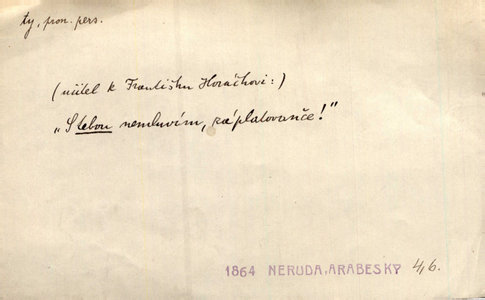 ty, pron. pers.
(učitel k Františku Horáčkovi:)
„S tebou nemluvím, záplatovanče!"
1864 NERUDA, ARABESKY 4,6.